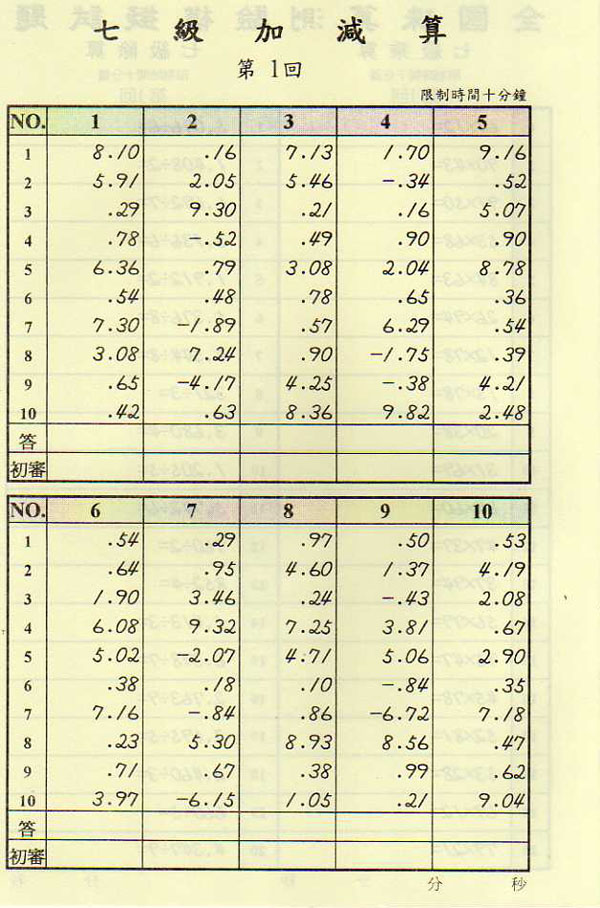 七級加減算
第 1 回
限制時間十分鐘
NO. 1 2 3 4 5
1 8.10 .16 7.13 1.70 9.16
2 5.91 2.05 5.46 -.34 .52
3 .29 9.30 .21 .16 5.07
4 .78 -.52 .49 .90 .90
5 6.36 .79 3.08 2.04 8.78
6 .54 .48 .78 .65 .36
7 7.30 -1.89 .57 6.29 .54
8 3.08 7.24 .90 -1.75 .39
9 .65 -4.17 4.25 -.38 4.21
10 .42 .63 8.36 9.82 2.48
答
初審
NO. 6 7 8 9 10
1 .54 .29 .97 .50 .53
2 .64 .95 4.60 1.37 4.19
3 1.90 3.46 .24 -.43 2.08
4 6.08 9.32 7.25 3.81 .67
5 5.02 -2.07 4.71 5.06 2.90
6 .38 .18 .10 -.84 .35
7 7.16 -.84 .86 -6.72 7.18
8 .23 5.30 8.93 8.56 .47
9 .71 .67 .38 .99 .62
10 3.97 -6.15 1.05 .21 9.04
答
初審
分 秒